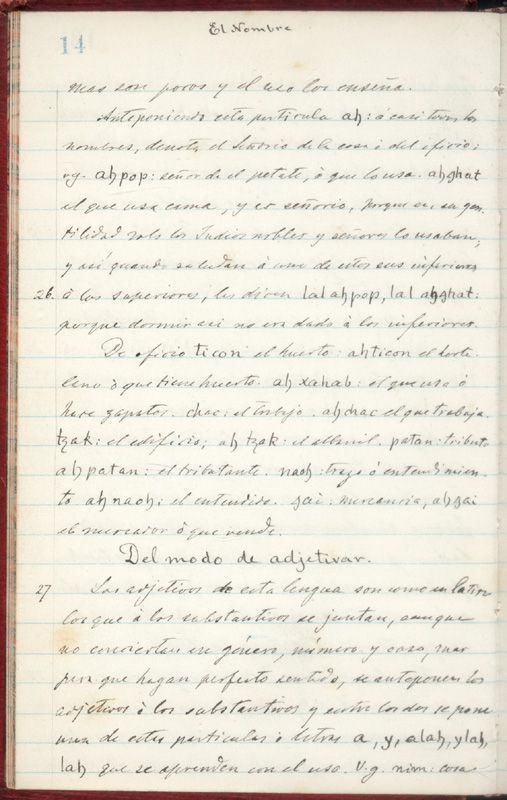 El Nombre
14
mas son pocos y el uso los enseña.
Anteponiendo esta particula ah: á casi todos los
nombres, denota el Señorio de la cosa ó del oficio;
vg. ahpop: señor de el petate, ò que lo usa. ahghat
el que usa cama, y es señorio, porque en su gen-
tilidad solo los Indios nobles y señores lo usaban;
y asi quando saludan à uno de estos sus inferiores
26. à los superiores, les dicen lal ahpop, lal ahghat:
porque dormir asi no era dado à los inferiores.
De oficio ticon: el huerto: ahticon el horte-
lano ò que tiene huerto. ah xahab: el que usa ò
hace zapatos. chac: el trabajo. ahchac el que trabaja.
tzak: el edificio; ah tzak: el albanil. patan: tributo
ahpatan: el tributante. naoh: traza ó entendimien-
to ahnaoh: el entendido. gai: mercancia, ahgai
el mercador ò que vende.
Del modo de adjetivar.
27 Los adjetivos de esta lengua son como en latin
los que à los substantivos se juntan, aunque
no conciertan en género, número y caso, mas
para que hagan perfecto sentido, se anteponen los
adjetivos à los substantivos y entre los dos se pone
una de estas particulas ò letras a, y, alah, ylah,
lah que se aprenden con el uso. V.g. nim: cosa